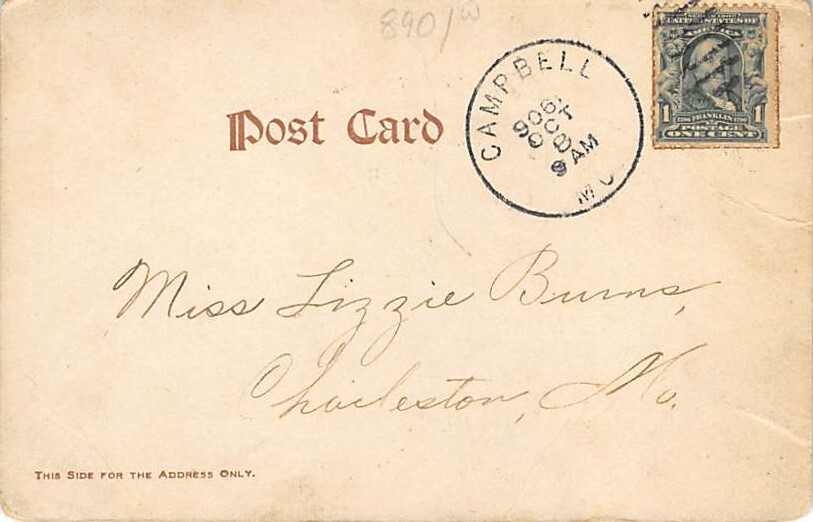 890/w
Post Card
CAMPBELL
1906
OCT
8
9 AM
MO
SERIES 1902
UNITED STATES OF
AMERICA
1 1706 FRANKLIN 1790 1
POSTAGE
ONE CENT
Miss Lizzie Burns,
Charleston, Mo.
THIS SIDE FOR THE ADDRESS ONLY.